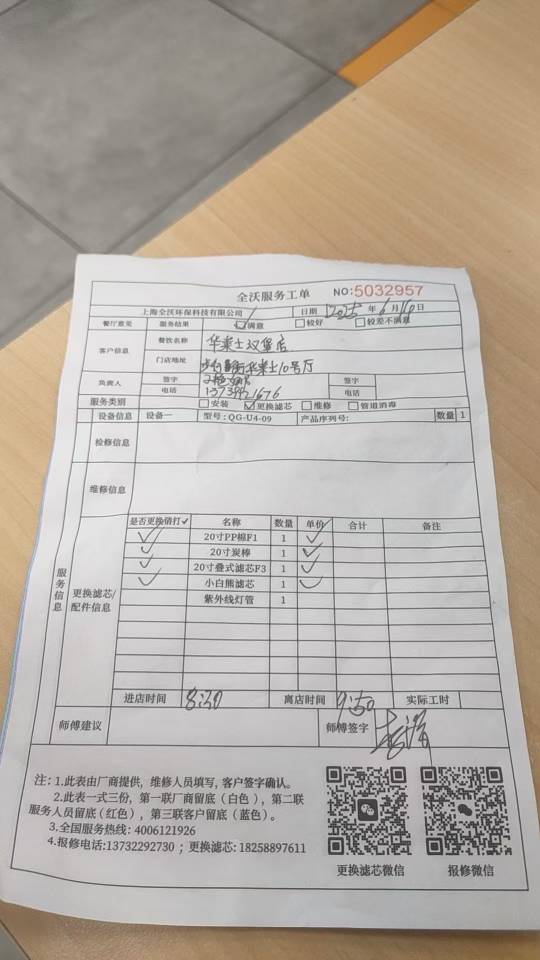 全沃服务工单 NO:5032957
上海全沃环保科技有限公司 日期 2025 年 6 月 16 日
餐厅意见 服务结果 ☑满意 □较好 □较差不满意
客户信息 餐饮名称 华莱士汉堡店
门店地址 华莱士10号厅
负责人 签字 签字
电话 电话
服务类别 □安装 ☑更换滤芯 □维修 □管道消毒
设备信息 设备一 型号:QG-U4-09 产品序列号: 数量 1
检修信息
维修信息
服务信息
更换滤芯/配件信息
是否更换请打✓ 名称 数量 单价 合计 备注
✓ 20寸PP棉F1 1 ✓
✓ 20寸炭棒 1 ✓
✓ 20寸叠式滤芯F3 1 ✓
✓ 小白熊滤芯 1 ✓
紫外线灯管 1
进店时间 8:30 离店时间 9:50 实际工时
师傅建议 师傅签字
注:1.此表由厂商提供,维修人员填写,客户签字确认。
2.此表一式三份,第一联厂商留底(白色),第二联
服务人员留底(红色),第三联客户留底(蓝色)。
3.全国服务热线: 4006121926
4.报修电话:13732292730 ; 更换滤芯: 18258897611
更换滤芯微信 报修微信